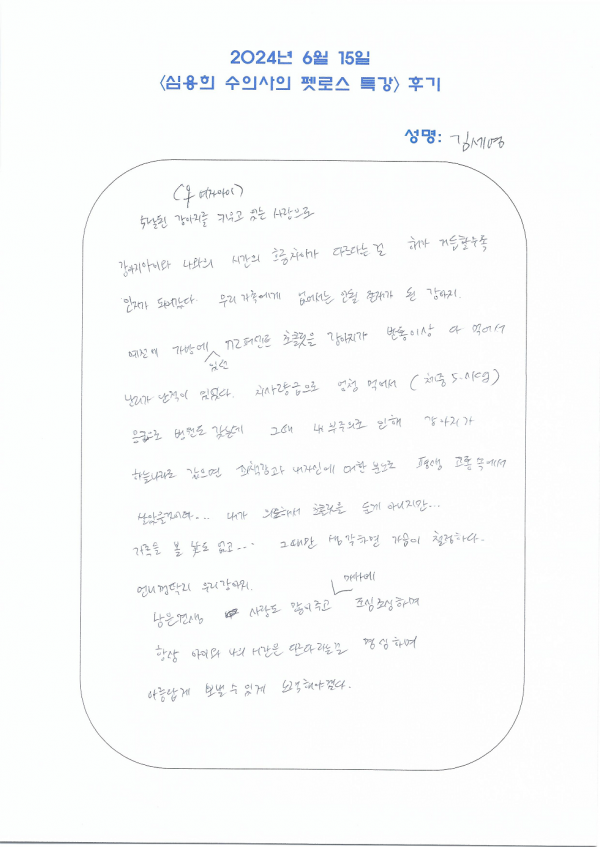 2024년 6월 15일
<심용희 수의사의 펫로스 특강> 후기
성명: 김세영
(우 여자아이)
강아지를 키우고 있는 사람으로
강아지아이와 나와의 시간의 흐름차이가 다르다는걸 해가 거듭할수록
인지가 되어간다. 우리 가족에게 없어서는 안될 존재가 된 강아지.
예전에 가방에 있던 72퍼센트 초콜릿을 강아지가 반통이상 다 먹어서
난리가 난적이 있었다. 치사량급으로 엄청 먹어서 (체중 5.1kg)
응급으로 병원도 갔는데 그때 내 부주의로 인해 강아지가
하늘나라로 갔으면 죄책감과 내자신에 대한 분노로 평생 고통속에서
살았을것이며... 내가 의도해서 초콜릿을 둔게 아니지만...
가족들 볼 낯도 없고... 그때만 생각하면 가슴이 철렁하다.
언니껌딱지 우리강아지.
남은견생 사랑도 많이주고 매사에 조심조심하며
항상 아이와 나의 시간은 다르다는걸 명심하며
아름답게 보낼 수 있게 노력해야겠다.